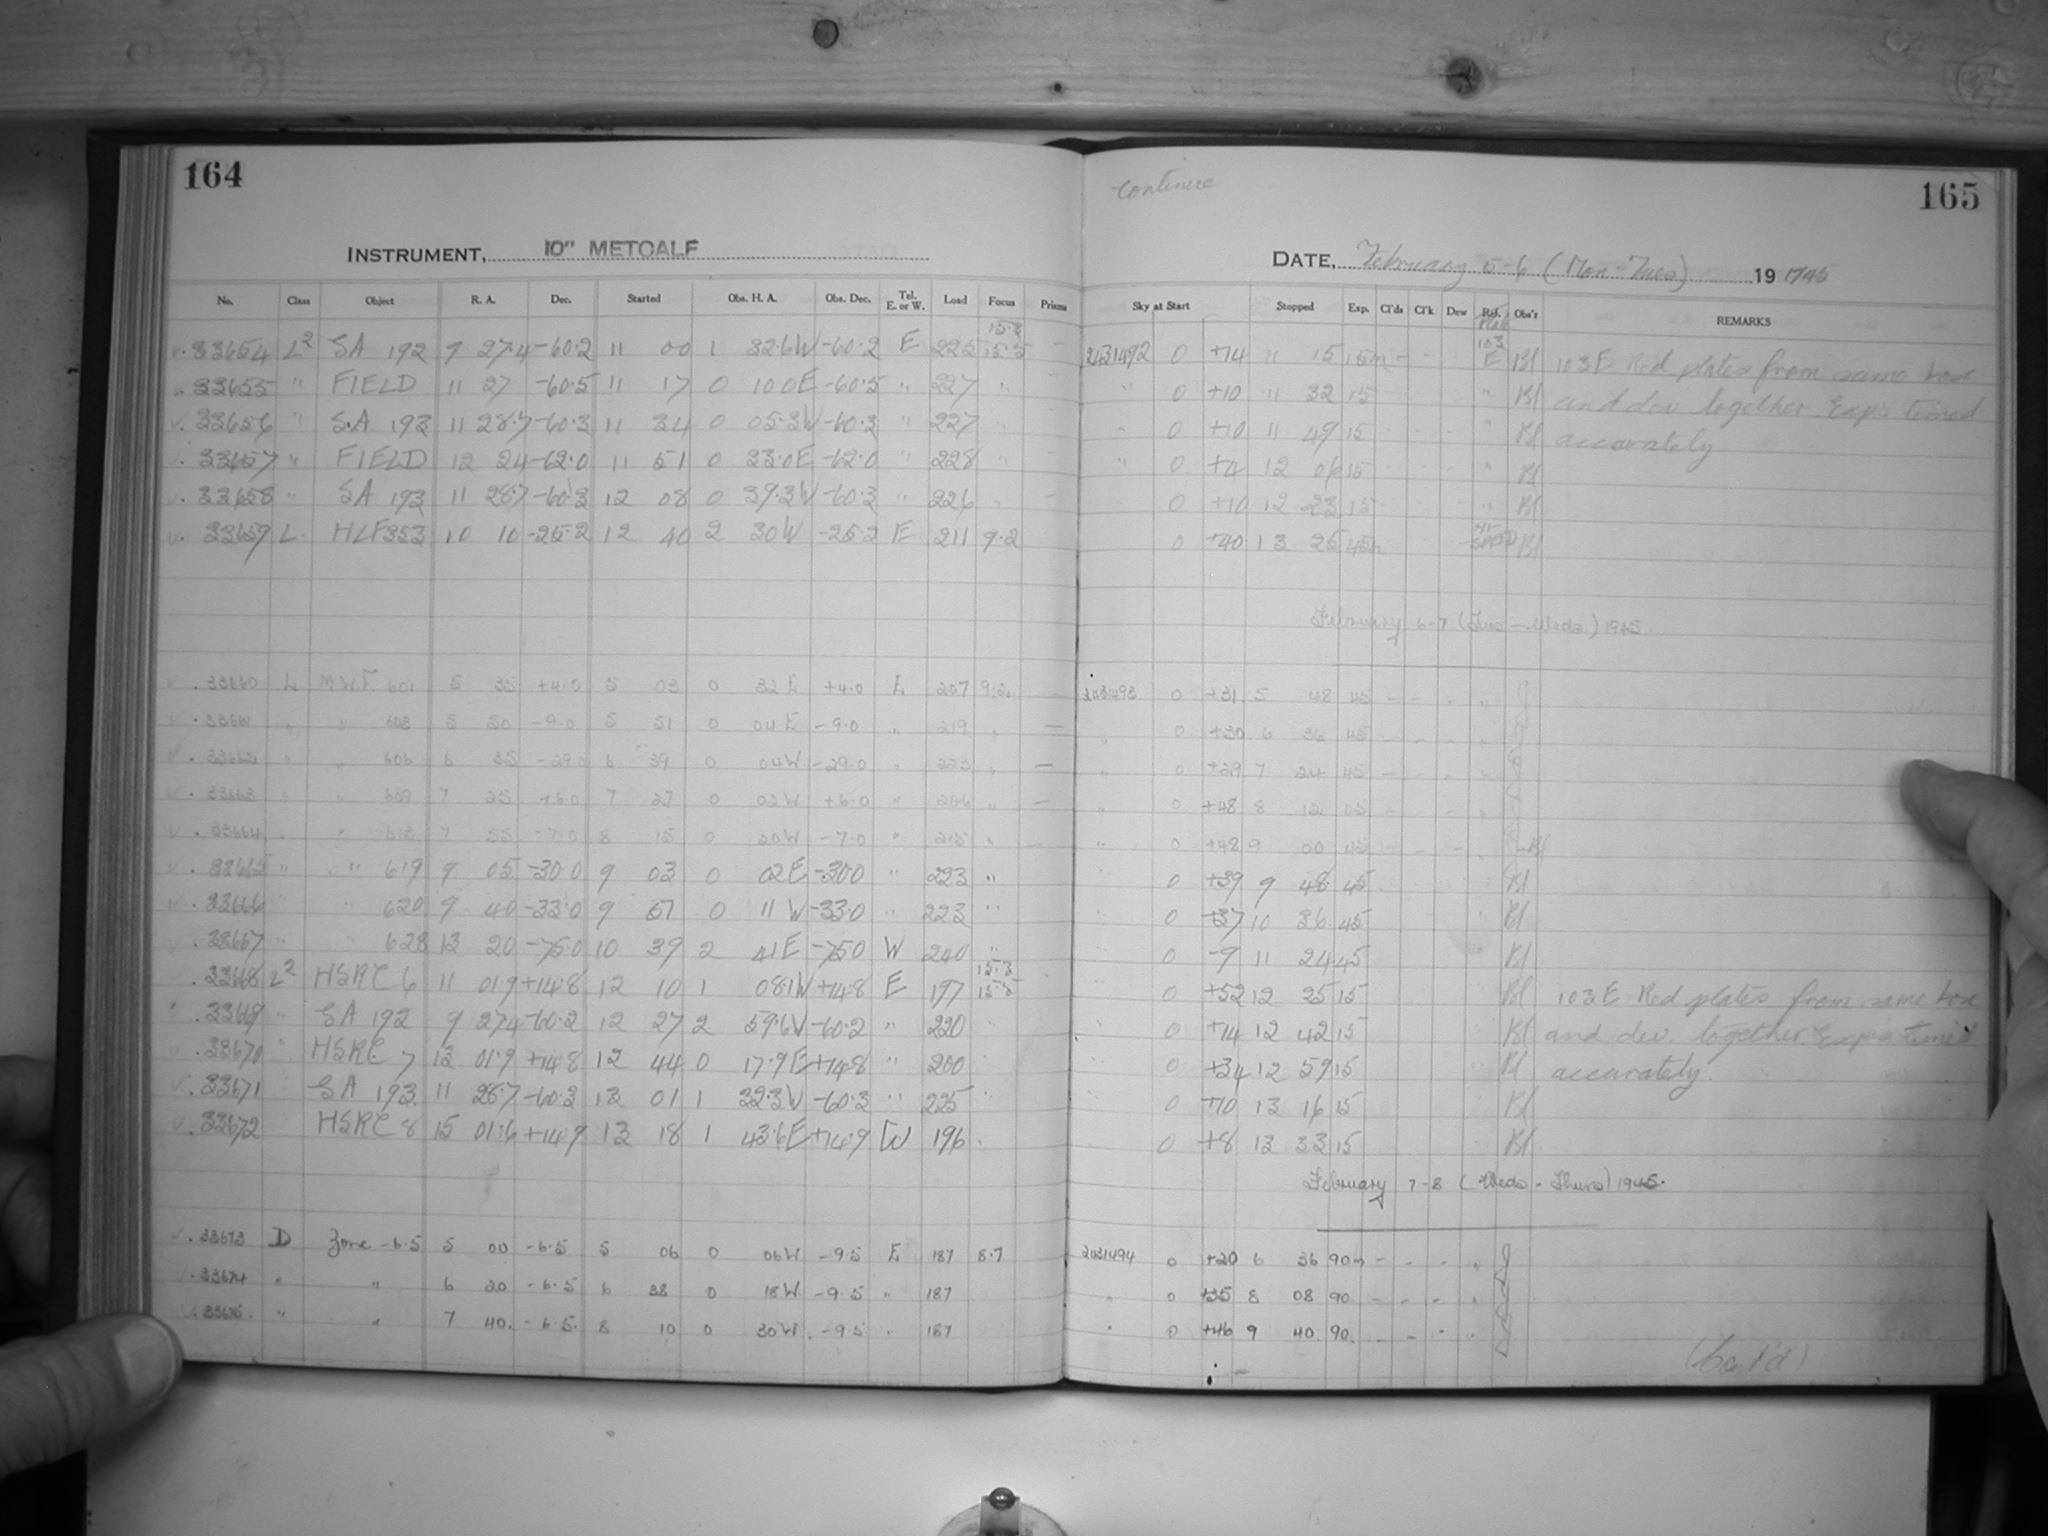 164
INSTRUMENT, 10" METCALF
No. Class Object R. A. Dec. Started Obs. H. A. Obs. Dec. Tel. E. or W. Load Focus Prisms
33654 L2 SA 192 9 27.4 -60.2 11 00 1 32.6W -60.2 E 225 15.3 15.5
33655 " FIELD 11 27 -60.5 11 17 0 10.0E -60.5 " 227 "
33656 " S.A 193 11 28.7 -60.3 11 34 0 05.3W -60.3 " 227 "
33657 " FIELD 12 24 -62.0 11 51 0 33.0E -62.0 " 228 "
33658 " SA 193 11 28.7 -60.3 12 08 0 39.3W -60.3 " 226
33659 L HLF353 10 10 -25.2 12 40 2 30W -25.2 E 211 9.2
33660 L M.W.F. 601 5 35 +4.0 5 03 0 32E +4.0 E 207 9.2 —
33661 " " 603 5 50 -9.0 5 51 0 04E -9.0 " 219 " —
33662 " " 606 6 35 -29.0 6 39 0 04W -29.0 " 223 " —
33663 " " 609 7 25 +6.0 7 27 0 02W +6.0 " 206 " —
33664 " " 613 7 55 -7.0 8 15 0 20W -7.0 " 215 " —
33665 " " 619 9 05 -30.0 9 03 0 02E -30.0 " 223 "
33666 " " 620 9 40 -33.0 9 51 0 11W -33.0 " 223 "
33667 " " 628 13 20 -75.0 10 39 2 41E -75.0 W 240 "
33668 L2 HSRC 6 11 01.9 +14.8 12 10 1 08.1W +14.8 E 197 15.3 15.5
33669 " SA 192 9 27.4 -60.2 12 27 2 59.6W -60.2 " 220 "
33670 " HSRC 7 13 01.9 +14.8 12 44 0 17.9E +14.8 " 200
33671 " SA 193 11 28.7 -60.3 13 01 1 32.3W -60.3 " 225
33672 HSRC 8 15 01.6 +14.9 13 18 1 43.6E +14.9 W 196
33673 D Zone -6.5 5 00 -6.5 5 06 0 06W -9.5 E 187 8.7
33674 " " 6 20 -6.5 6 38 0 18W -9.5 " 187
33675 " " 7 40 -6.5 8 10 0 30W -9.5 " 187
continue
165
DATE, February 5-6 (Mon-Tues) 19 1945
Sky at Start Stopped Exp. Cl'ds Cl'k Dew Ref. Obs'r REMARKS
Plate
2431492 0 +14 11 15 15m - - - 103 E Bl 103E Red plates from same box
" 0 +10 11 32 15 " Bl and dev. together. Exp's timed
" 0 +10 11 49 15 " Bl accurately
" 0 +4 12 06 15 " Bl
0 +10 12 23 15 " Bl
0 +40 13 25 45m Bl
February 6-7 (Tues-Weds.) 1945.
2431493 0 +31 5 48 45 - - - "
" 0 +30 6 36 45 - - - "
" 0 +29 7 24 45 - - - "
" 0 +48 8 12 45 - - - "
" 0 +48 9 00 45 - - - Bl
" 0 +39 9 48 45 Bl
" 0 +37 10 36 45 Bl
" 0 -9 11 24 45 Bl
" 0 +52 12 25 15 Bl 103E Red plates from same box
" 0 +14 12 42 15 Bl and dev. together. Exp's timed
" 0 +34 12 59 15 Bl accurately.
0 +10 13 16 15 Bl
0 +8 13 33 15 Bl
February 7-8 (Weds - Thurs) 1945.
2431494 0 +20 6 36 90m - - - "
" 0 +35 8 08 90 - - - "
" 0 +46 9 40 90 - - - "
(Cont'd)